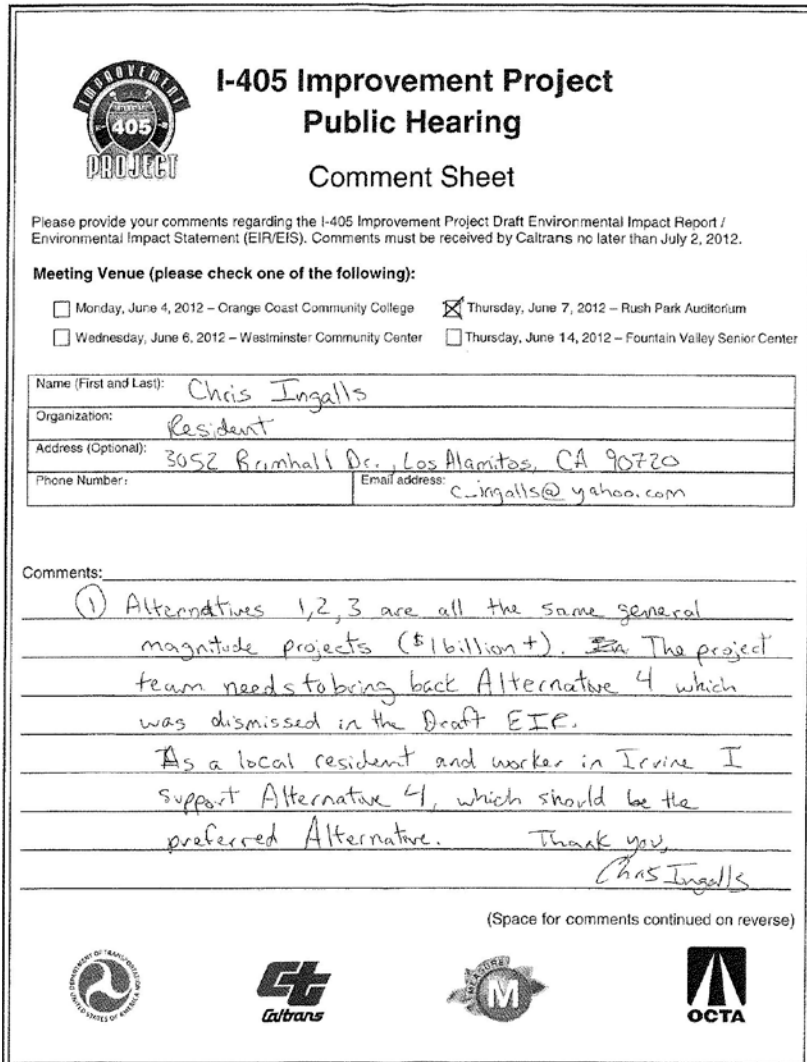 IMPROVEMENT
405
PROJECT
I-405 Improvement Project
Public Hearing
Comment Sheet
Please provide your comments regarding the I-405 Improvement Project Draft Environmental Impact Report /
Environmental Impact Statement (EIR/EIS). Comments must be received by Caltrans no later than July 2, 2012.
Meeting Venue (please check one of the following):
Monday, June 4, 2012 – Orange Coast Community College
Thursday, June 7, 2012 – Rush Park Auditorium
Wednesday, June 6, 2012 – Westminster Community Center
Thursday, June 14, 2012 – Fountain Valley Senior Center
Name (First and Last): Chris Ingalls
Organization: Resident
Address (Optional): 3052 Brimhall Dr., Los Alamitos, CA 90720
Phone Number:
Email address: c_ingalls@yahoo.com
Comments:
① Alternatives 1,2,3 are all the same general
magnitude projects ($1billion+). The project
team needs to bring back Alternative 4 which
was dismissed in the Draft EIR.
As a local resident and worker in Irvine I
support Alternative 4, which should be the
preferred Alternative. Thank you,
Chris Ingalls
(Space for comments continued on reverse)
DEPARTMENT OF TRANSPORTATION
UNITED STATES OF AMERICA
Ct
Caltrans
MEASURE
M
OCTA